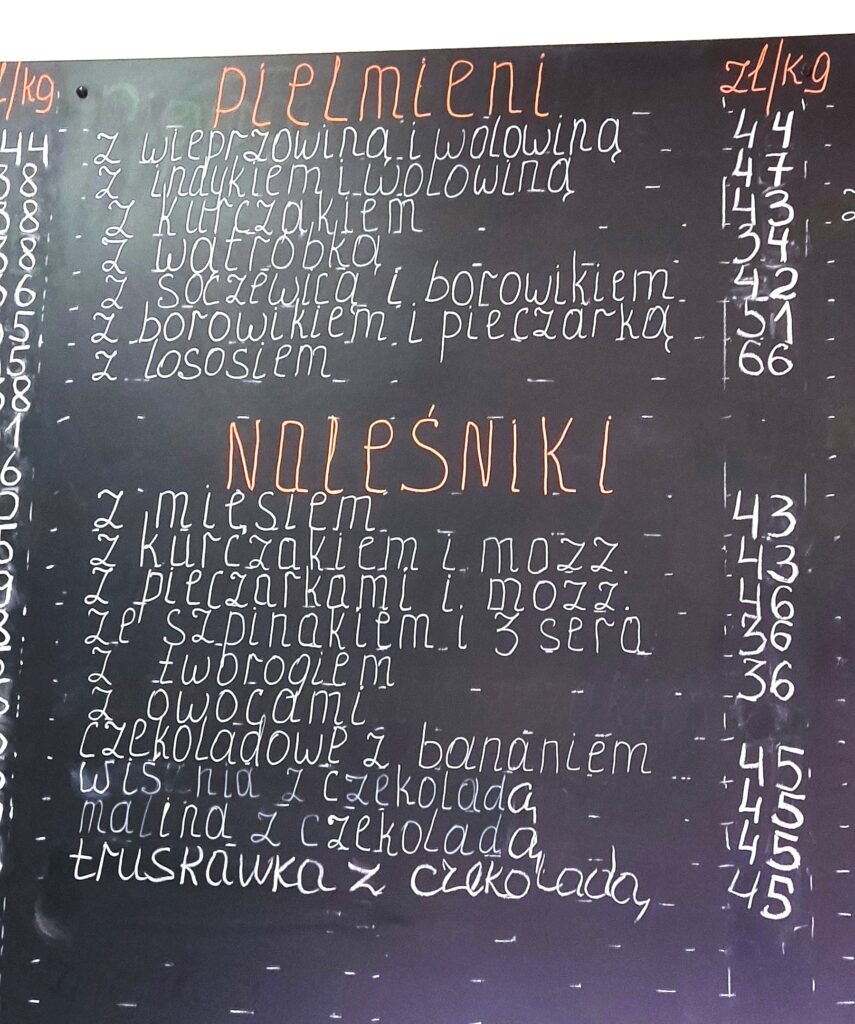 /kg
44
PIELMIENI zł/kg
z wieprzowiną i wołowiną 44
z indykiem i wołowiną 47
z kurczakiem 43
z wątrobką 34
z soczewicą i borowikiem 42
z borowikiem i pieczarką 51
z łososiem 66
NALEŚNIKI
z mięsem 43
z kurczakiem i mozz. 43
z pieczarkami i mozz. 46
ze szpinakiem i 3 sera 36
z tworogiem 36
z owocami
czekoladowe z bananiem 45
wiśnia z czekoladą 45
malina z czekoladą 45
truskawka z czekoladą 45